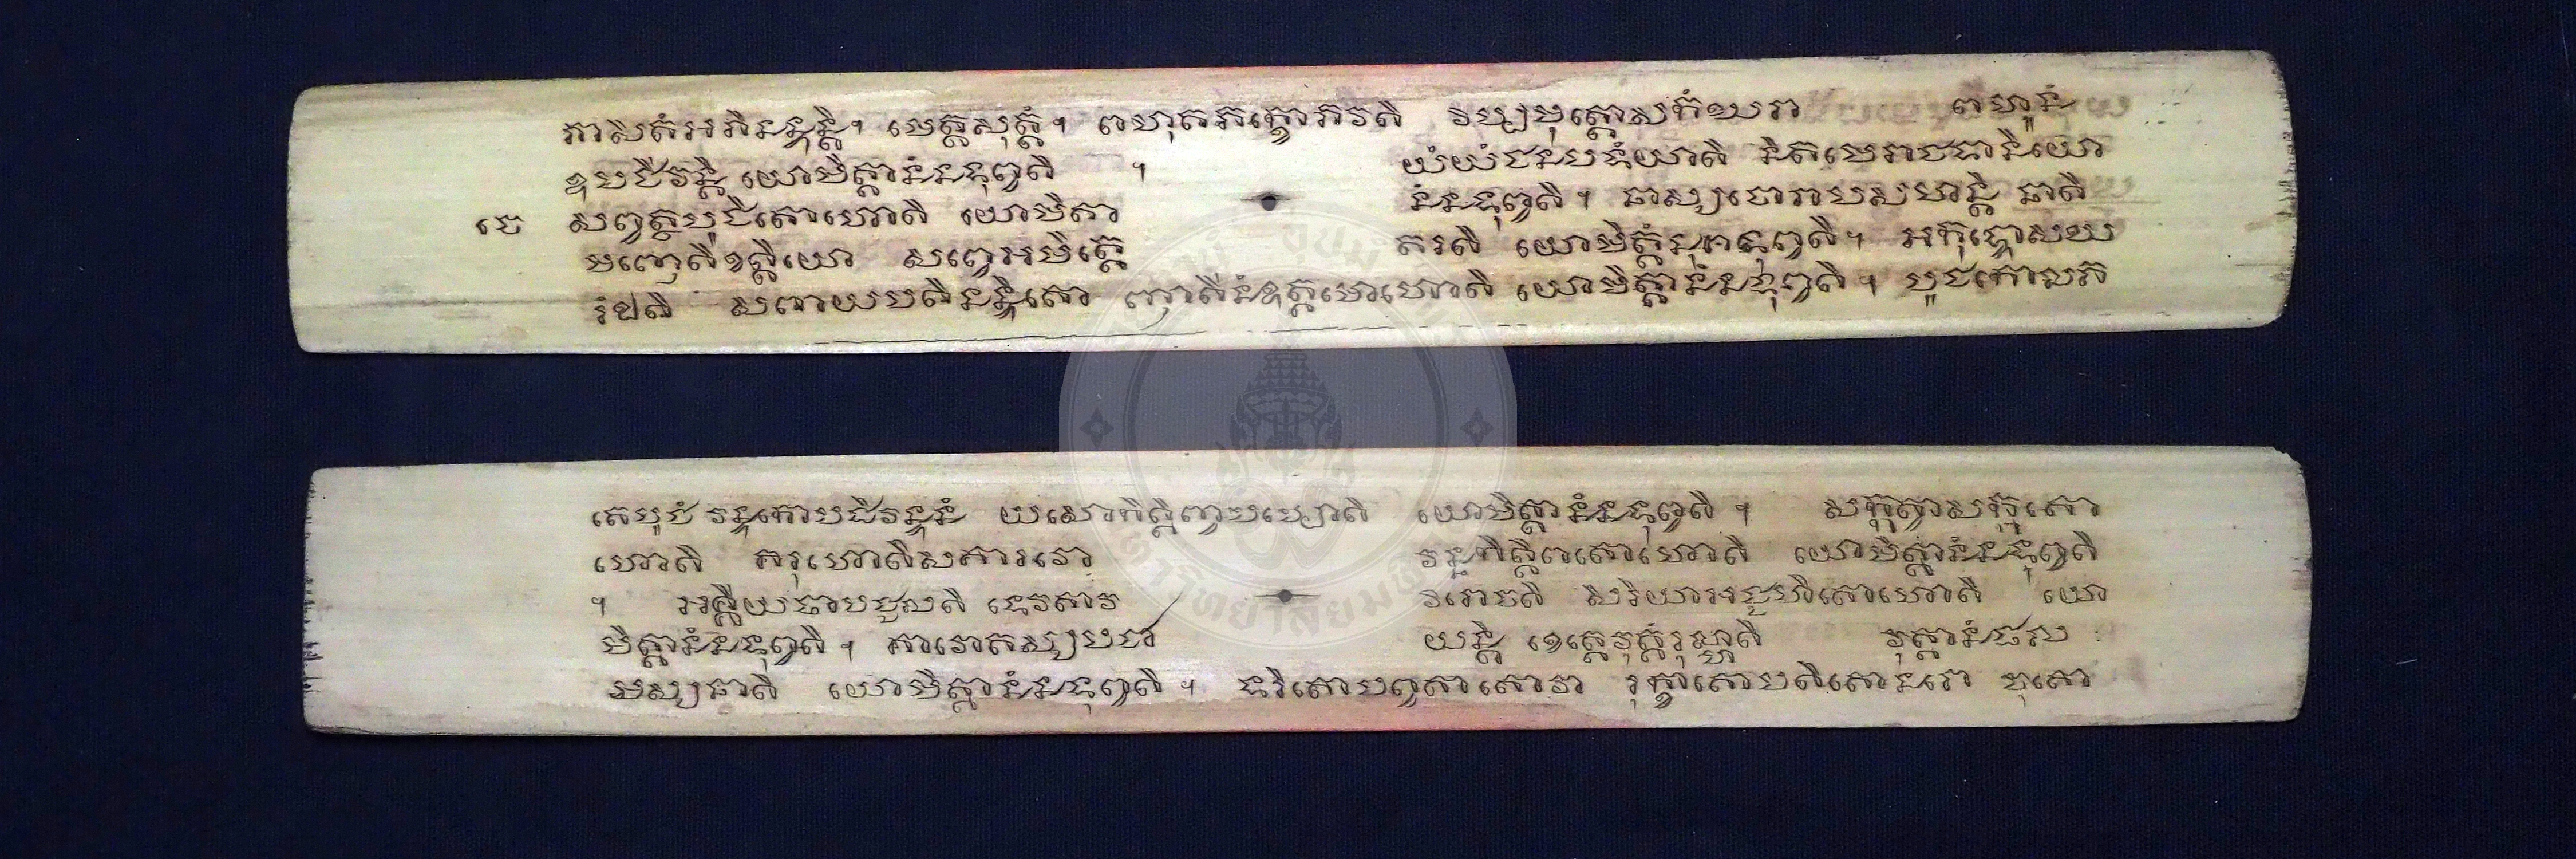 ភាសិតំអភិនន្ទុន្តិ។ មេត្តសុត្តំ។ ពហុតភក្ខោភវតិ វិប្បមុត្តោសកំឃរា ពហូនំ
ឧបជីវន្តិ យោមិត្តានំនទុព្ភតិ ។ យំយំជនបទំយាតិ និគមេរាជធានិយោ
ចេ សព្វត្ថបូជិតោហោតិ យោមិត្តា នំនទុព្ភតិ។ នាស្សចោរាបសហន្តិ នាតិ
មញ្ញេតិខត្តិយោ សព្វេអមិត្តេ តរតិ យោមិត្តានំនទុព្ភតិ។ អកុទ្ធោសឃ
រំឯតិ សភាយបតិនន្ទិតោ ញាតីនំឧត្តមោហោតិ យោមិត្តានំនទុព្ភតិ។ បូជកោលភ
តេបូជំ វន្ទកោបដិវន្ទនំ យសោកិត្តិញ្ចបប្បោតិ យោមិត្តានំនទុព្ភតិ។ សក្កត្វាសក្កតោ
ហោតិ គរុហោតិសគារវោ វណ្ណកិត្តិភតោហោតិ យោមិត្តានំនទុព្ភតិ
។ អគ្គិយថាបជ្ជលតិ ទេវតាវ វិរោចតិ សិរិយាអជហិតោហោតិ យោ
មិត្តានំនទុព្ភតិ។ គាវោតស្សបជា យន្តិ ខេត្តេវុត្តំរុហ្ហតិ វុត្តានំផល
មស្សនាតិ យោមិត្តានំនទុព្ភតិ។ ទរិតោបព្វតាតោវា រុក្ខាតោបតិតោនរោ ចុតោ